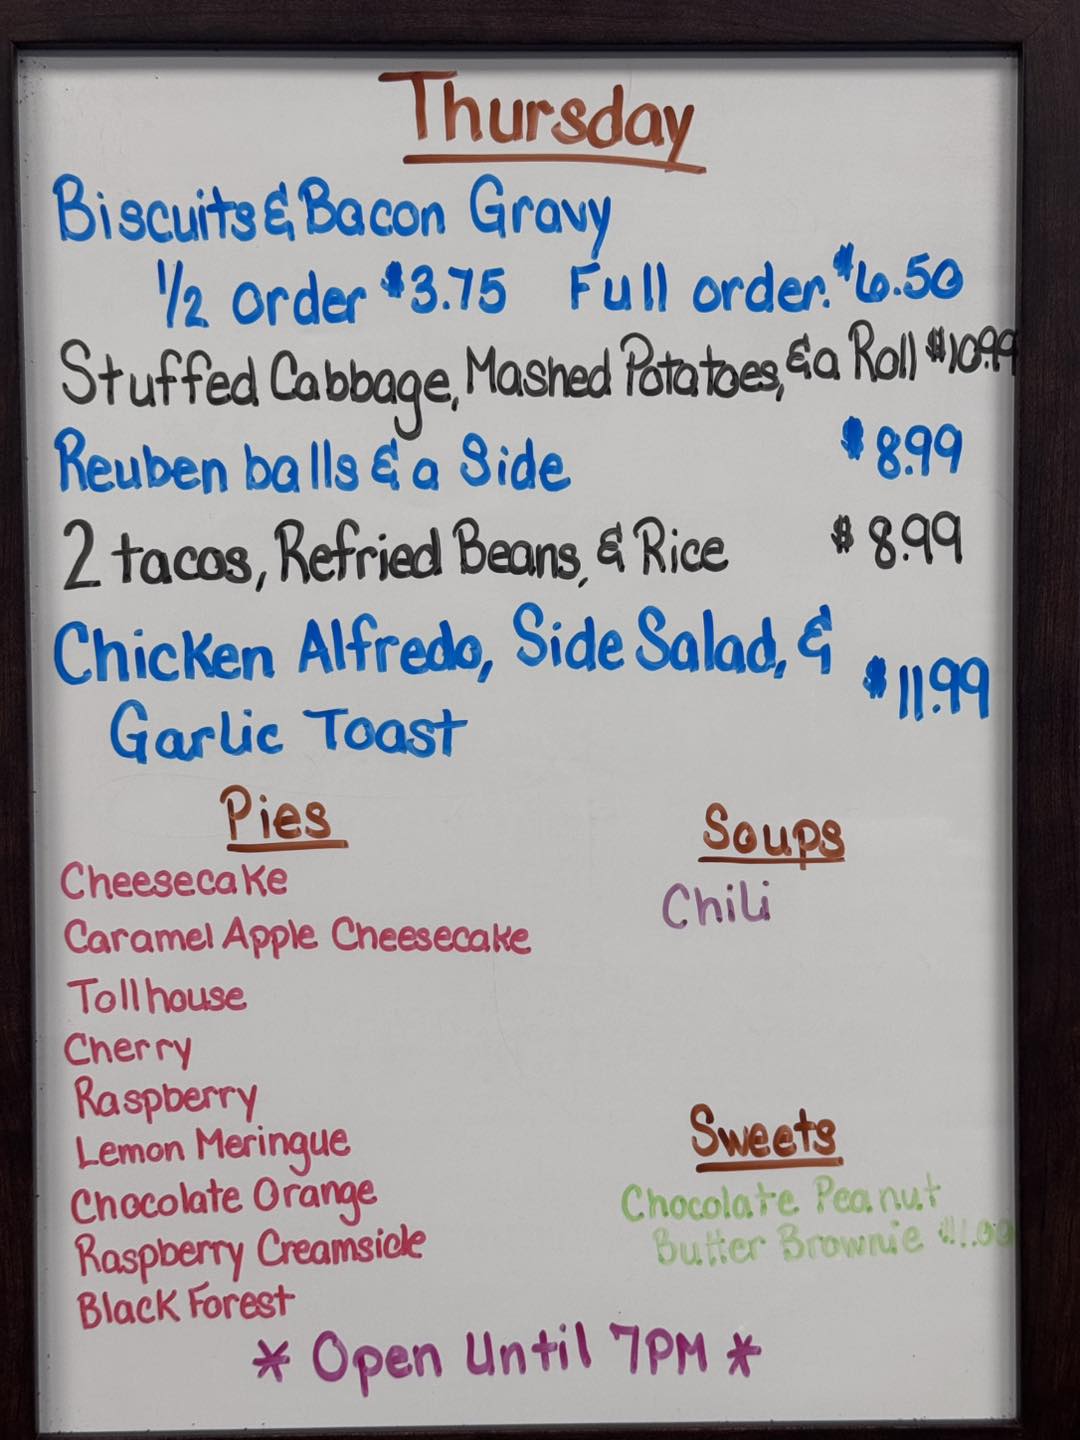 Thursday
Biscuits & Bacon Gravy
1/2 order $3.75 Full order $6.50
Stuffed Cabbage, Mashed Potatoes, & a Roll $10.99
Reuben balls & a Side $8.99
2 tacos, Refried Beans, & Rice $8.99
Chicken Alfredo, Side Salad, & $11.99
Garlic Toast
Pies
Cheesecake
Caramel Apple Cheesecake
Tollhouse
Cherry
Raspberry
Lemon Meringue
Chocolate Orange
Raspberry Creamsicle
Black Forest
Soups
Chili
Sweets
Chocolate Peanut
Butter Brownie $1.00
* Open Until 7PM *